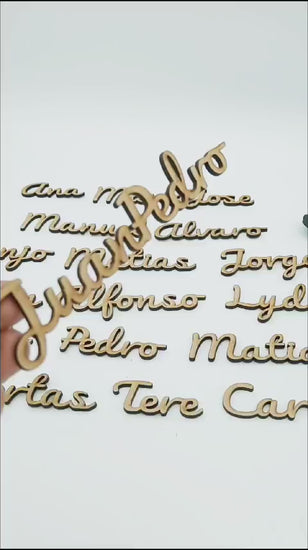 JuanPedro
Ana
Manu Alvaro
Matias Jorg
Alfonso Lyd
Pedro Matia
rtas Tere Car